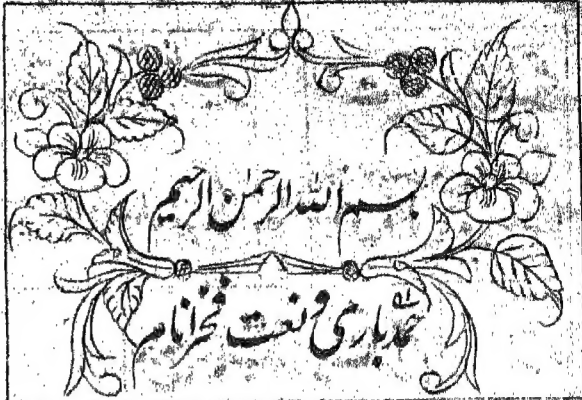 بسم اللہ الرحمٰن الرحیم
حمد باری و نعت فخر انام